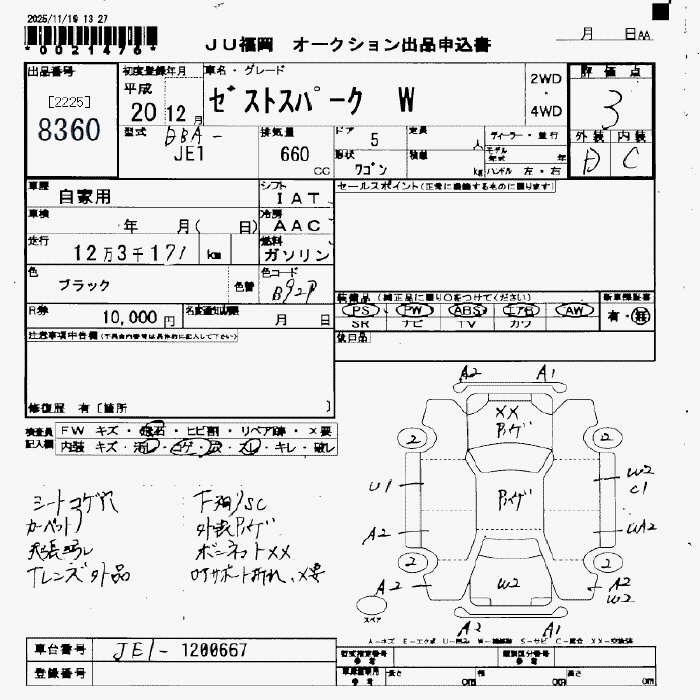 2025/11/19 13 27
*0021476*
JU福岡 オークション出品申込書
月 日AA
出品番号
[2225]
8360
初度登録年月
平成
20 12月
車名・グレード
ゼストスパーク W
2WD
・
4WD
評価点
3
外装 内装
D C
型式
DBA-
JE1
排気量
660
CC
ドア 5
形状 ワゴン
定員
人
積載
kg
ディーラー・並行
モデル年式 年
ハンドル 左・右
車歴
自家用
シフト
IAT
車検
年 月( 日)
冷房
AAC
走行
12万3千171 km
燃料
ガソリン
色
ブラック
色替
色コード
B92P
R券
10,000 円
名変通知期限
月 日
セールスポイント(正常に機能するものに限ります)
装備品 (純正品に限り○をつけてください)
PS PW ABS エアB AW
SR ナビ TV カワ
新車保証書
有・無
後日品
注意事項申告欄
修復歴 有 [箇所 ]
検査員
記入欄
FW キズ・飛石・ヒビ割・リペア跡・X要
内装 キズ・汚レ・コゲ・穴・スレ・キレ・破レ
シートコゲ穴
カーペット
天張汚レ
TレンズS外品
下廻りSC
外装Pハゲ
ボンネットXX
ORサポート折れ、X要
A2 A1
XX
Pハゲ
2 2
U1
W2
C1
Pハゲ
A2
UA2
2 2
A2
W2
A2
W2
スペア
A2 A1
A-キズ E-エクボ U-凹み W-補修跡 S-サビ C-腐食 XX-交換済
車台番号
JE1-1200667
登録番号
型式指定番号
参考
類別区分番号
参考
長さ cm 幅 cm 高さ cm